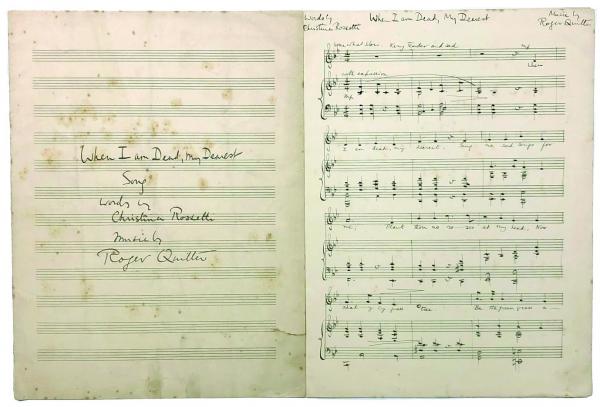 When I am Dead, My Dearest
Song
Words by
Christina Rossetti
Music by
Roger Quilter
Words by
Christina Rossetti
When I am Dead, My Dearest
Music by
Roger Quilter
Somewhat slow. Very tender and sad
mp
When
with expression
mp
I am dead, my dearest, Sing no sad songs for
me; Plant thou no ro-ses at my head, Nor
sha-dy cy-press tree Be the green grass a-